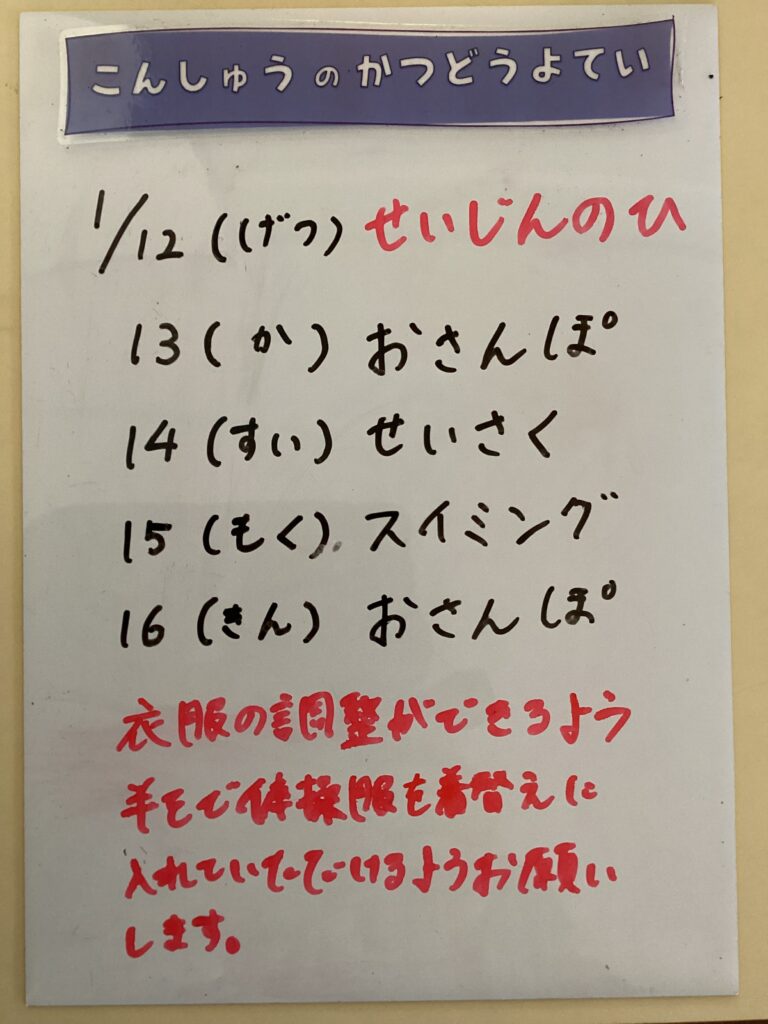 こんしゅうのかつどうよてい
1/12(げつ) せいじんのひ
13(か) おさんぽ
14(すい) せいさく
15(もく) スイミング
16(きん) おさんぽ
衣服の調整ができるよう
半そで体操服を着替えに
入れていただけるようお願い
します。